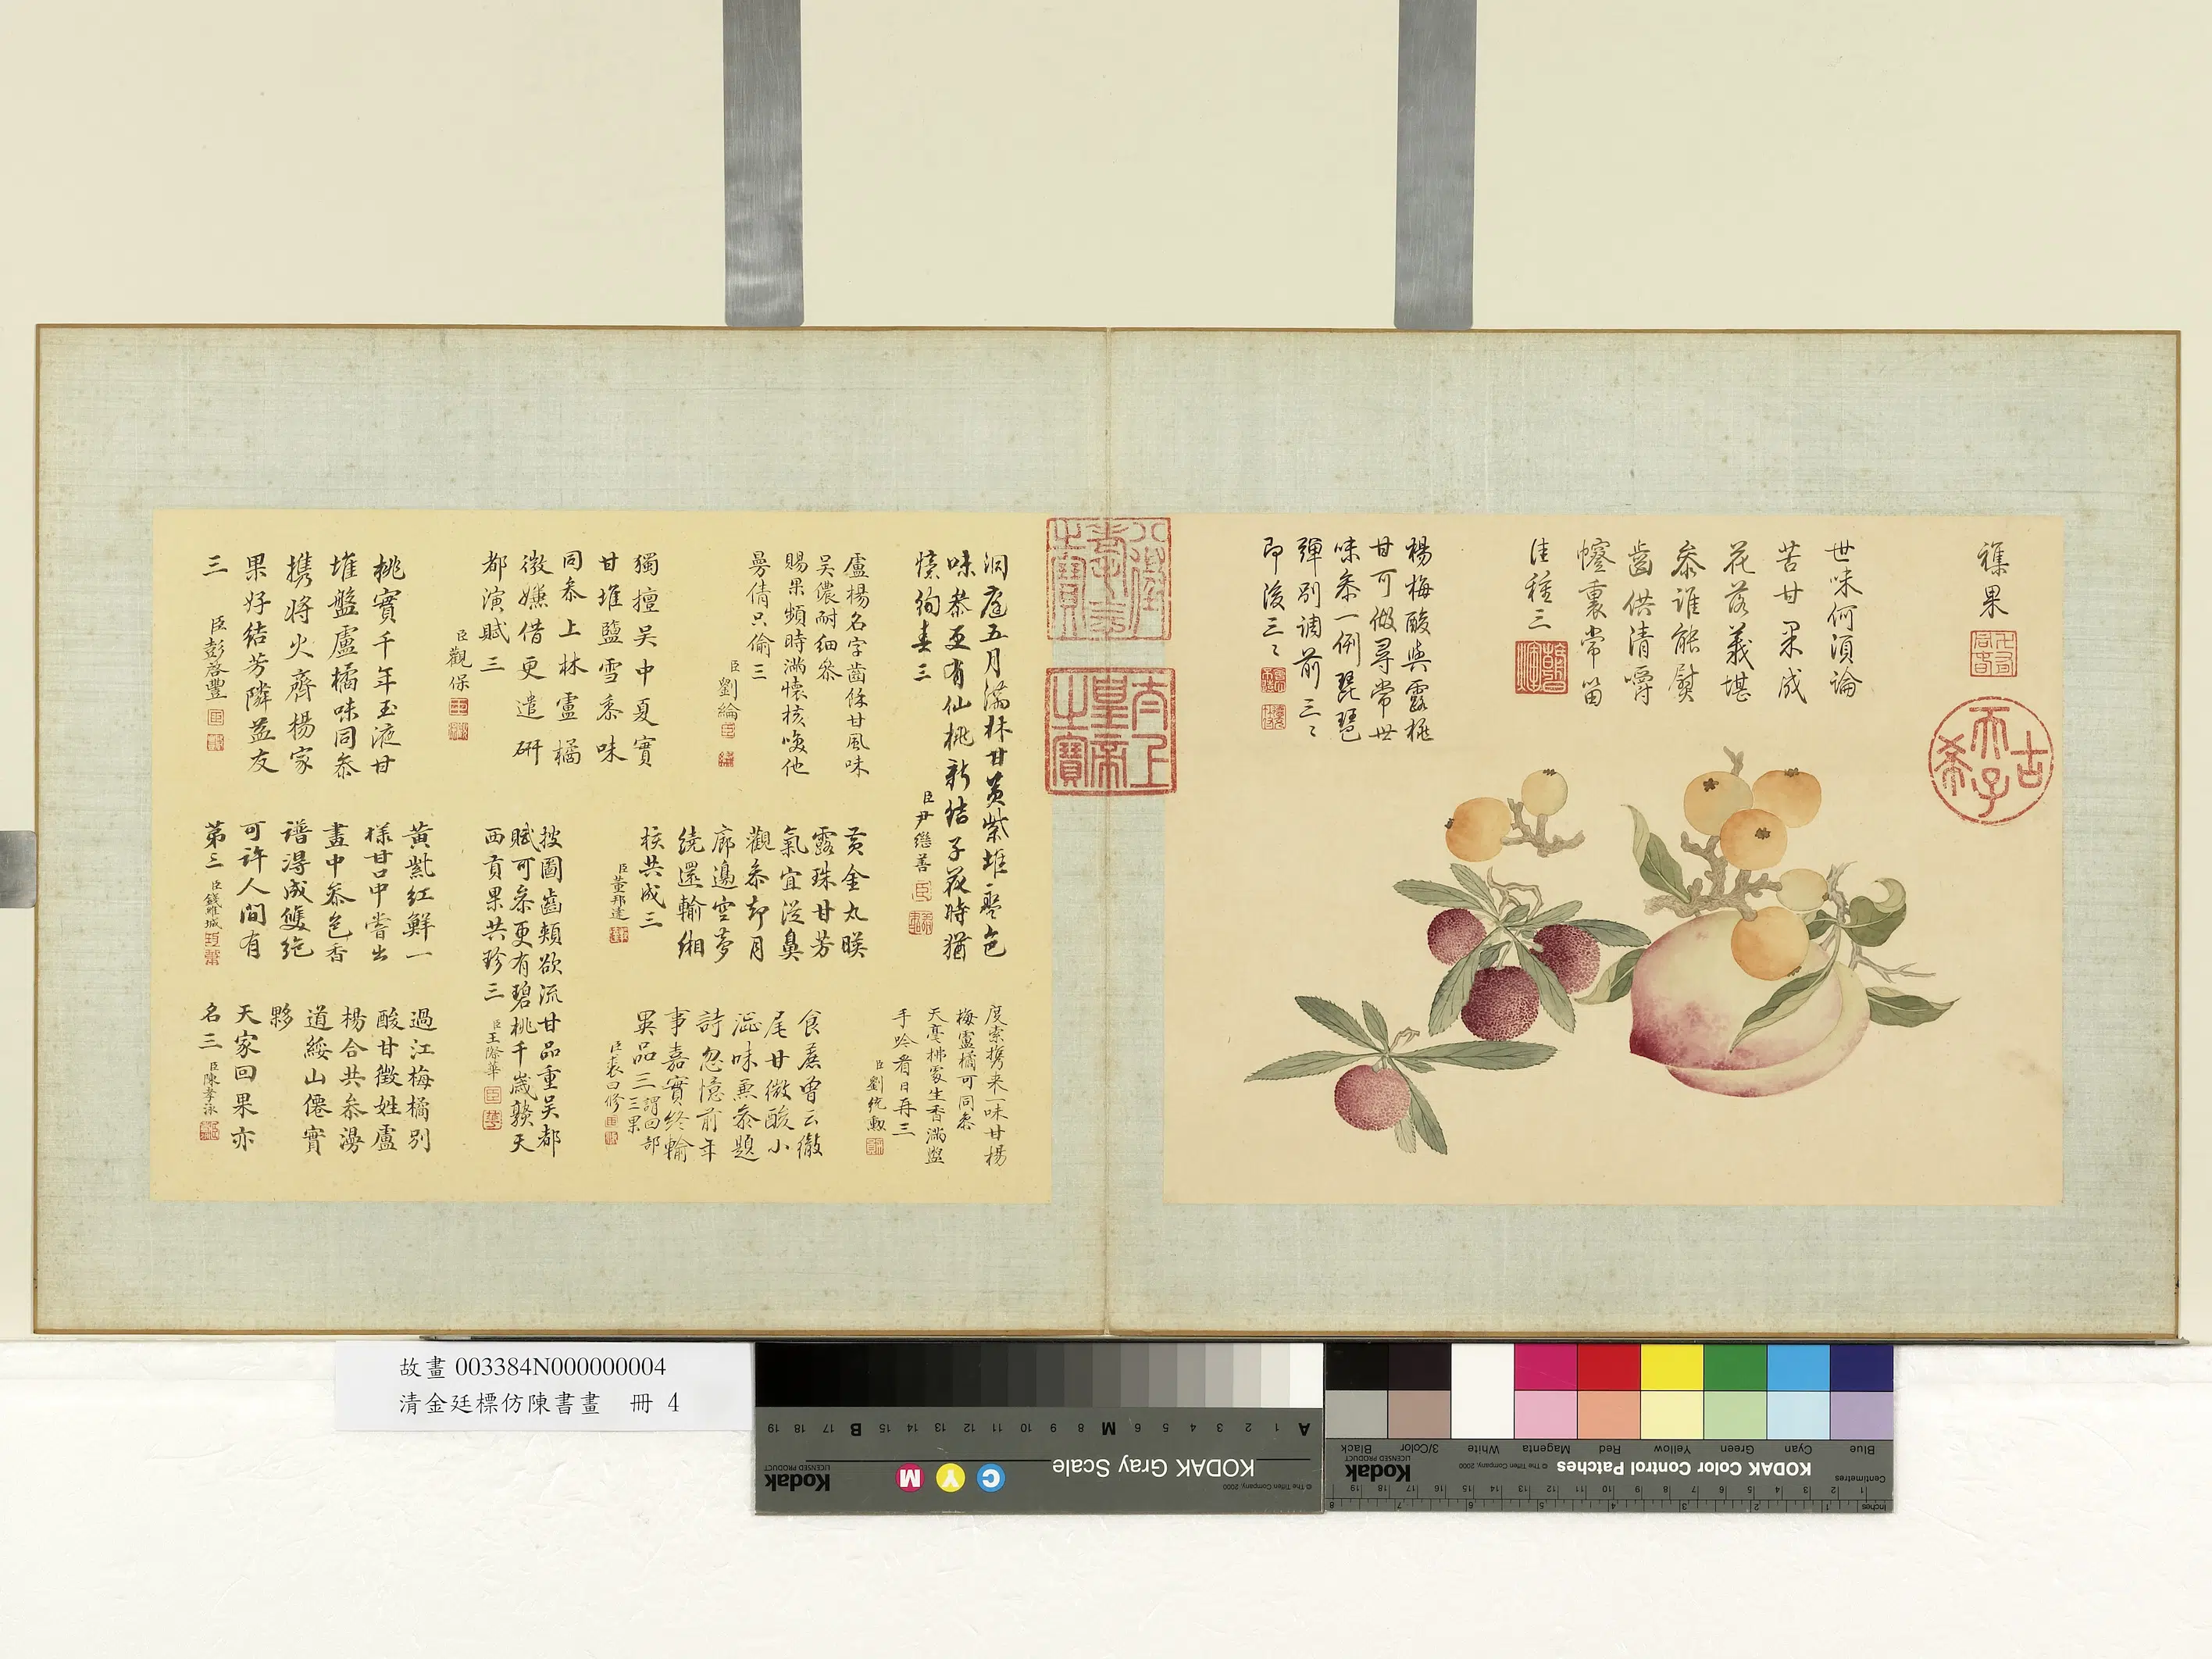 襍果
世味何須論
苦甘果成
花落義堪
叅誰能熨
齒供清嚼
幰裏常留
佳種三
楊梅酸與露桃
甘可傲尋常世
味叅一例琵琶
彈別調前三〻
即後三〻
古
天子
希
八徵
耄念
之寶
太上
皇帝
之寶
洞庭五月滿林甘黃紫堆盤色
味叅更有仙桃新結子花時猶
憶絢春三
臣尹繼善
盧楊名字齒條甘風味
吳儂耐細叅
賜果頻時滿懷核喚他
曼倩只偷三
臣劉綸
獨擅吳中夏實
甘堆鹽雪黍味
同叅上林盧橘
徵嫌借更遣硏
都演賦三
臣觀保
桃實千年玉液甘
堆盤盧橘味同叅
携將火齊楊家
果好結芳隣益友
三
臣彭啓豐
黃金丸暎
露珠甘芳
氣宜從鼻
觀叅却月
廊邊空夢
繞還輸緗
核共成三
臣董邦達
披圖齒頰欲流甘品重吳都
賦可叅更有碧桃千歲頳天
西貢果共珍三
臣王際華
黃紫紅鮮一
樣甘口中嘗出
畫中叅色香
譜得成雙絕
可許人間有
第三
臣錢維城
度索携来一味甘楊
梅盧橘可同叅
天毫拂處生香滿盥
手吟看日再三
臣劉統勳
食蔗曾云徹
尾甘微酸小
澁味兼叅題
詩忽憶前年
事嘉實終輸
異品三
謂回部
三果
臣裘曰修
過江梅橘別
酸甘徵姓盧
楊合共叅漫
道綏山僊實
夥
天家回果亦
名三
臣陳孝泳
故畫 003384N000000004
清金廷標仿陳書畫 冊 4
KODAK Gray Scale
© The Tiffen Company, 2000
Kodak
LICENSED PRODUCT
C
Y
M
A 1 2 3 4 5 6 M 8 9 10 11 12 13 14 15 B 17 18 19
KODAK Color Control Patches
© The Tiffen Company, 2000
Kodak
LICENSED PRODUCT
Blue Cyan Green Yellow Red Magenta White 3/Color Black
Centimetres
Inches